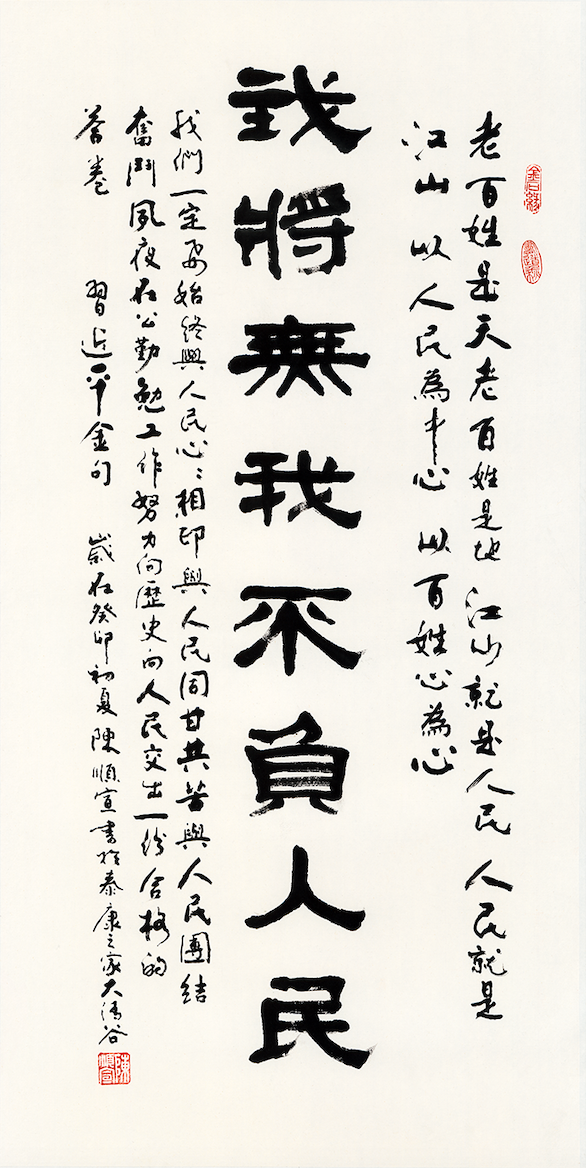 老百姓是天老百姓是地 江山就是人民 人民就是
江山 以人民為中心 以百姓心為心
我將無我不負人民
我們一定要始終與人民心〻相印與人民同甘共苦與人民團結
奮鬥夙夜在公勤勉工作努力向歷史向人民交出一份合格的
答卷 習近平金句 歲在癸卯初夏陳順宣書於泰康之家大清谷
陳順宣